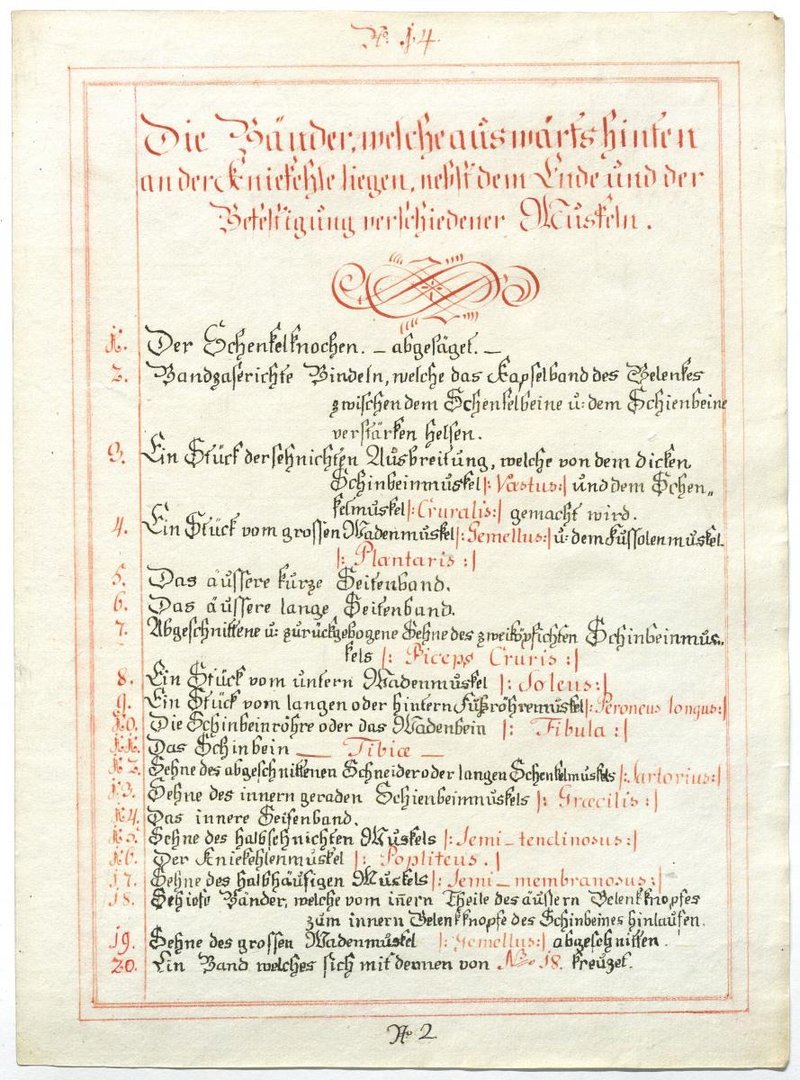 No. 14.
Die Bänder, welche auswärts hinten
an der Kniekehle liegen, nebst dem Ende und der
Befestigung verschiedener Muskeln.
1. Der Schenkelknochen. – abgesäget. –
2. Bandzaserichte Bindeln, welche das Kapselband des Gelenkes
zwischen dem Schenkelbeine u: dem Schienbeine
verstärken helfen.
3. Ein Stück der sehnichten Ausbreitung, welche von dem dicken
Schinbeinmuskel |: Vastus :| und dem Schen„
kelmuskel |: Cruralis :| gemacht wird.
4. Ein Stück vom grossen Wadenmuskel |: Gemellus :| u: dem Fussolenmuskel
|: Plantaris :|
5. Das äussere kurze Seitenband.
6. Das äussere lange Seitenband.
7. Abgeschnittene u: zurückgebogene Sehne des zweiköpfichten Schinbeinmus„
kels |: Biceps Cruris :|
8. Ein Stück vom untern Wadenmuskel |: Soleus :|
9. Ein Stück vom langen oder hintern Fußröhremuskel |: Peroneus longus :|
10. Die Schinbeinröhre oder das Wadenbein |: Fibula :|
11. Das Schinbein — Tibiæ —
12. Sehne des abgeschnittenen Schneider oder langen Schenkelmuskels |: Sartorius :|
13. Sehne des innern geraden Schienbeinmuskels |: Græcilis :|
14. Das innere Seitenband.
15. Sehne des halbsehnichten Muskels |: Semi-tendinosus :|
16. Der Kniekehlenmuskel |: Popliteus . |
17. Sehne des halbhäufigen Muskels |: Semi-membranosus :|
18. Schiefe Bänder, welche vom iñern Theile des äussern Gelenkknopfes
zum innern Gelenkknopfe des Schinbeines hinlaufen.
19. Sehne des grossen Wadenmuskel |: Gemellus :| abgeschnitten.
20. Ein Band welches sich mit dennen von Nro 18. kreuzet.
No 2